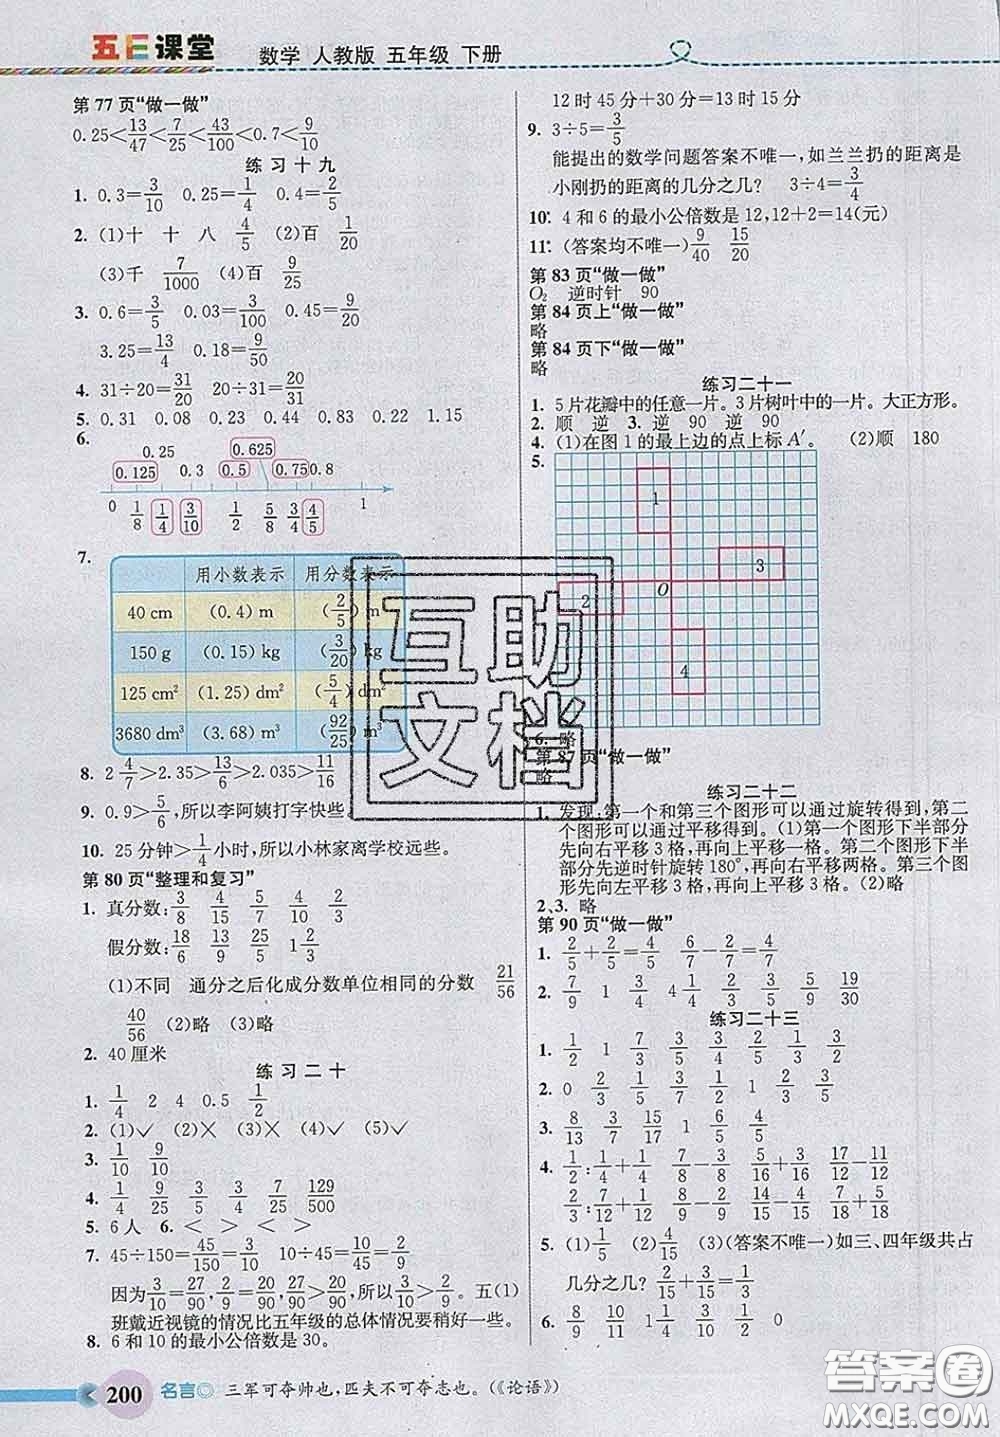 五E课堂
数学 人教版 五年级 下册
第77页“做一做”
0.25<13/47<7/25<43/100<0.7<9/10
练习十九
1. 0.3=3/10 0.25=1/4 0.4=2/5
2. (1)十 十 八 4/5 (2)百 1/20
(3)千 7/1000 (4)百 9/25
3. 0.6=3/5 0.03=3/100 0.45=9/20
3.25=13/4 0.18=9/50
4. 31÷20=31/20 20÷31=20/31
5. 0.31 0.08 0.23 0.44 0.83 0.22 1.15
6.
0.25 0.625
0.125 0.3 0.5 0.75 0.8
0 1/8 1/4 3/10 1/2 5/8 3/4 4/5 1
7.
用小数表示 用分数表示
40 cm (0.4) m (2/5) m
150 g (0.15) kg (3/20) kg
125 cm² (1.25) dm² (5/4) dm²
3680 dm³ (3.68) m³ (92/25) m³
8. 2 4/7>2.35>13/6>2.035>11/16
9. 0.9>5/6,所以李阿姨打字快些。
10. 25分钟>1/4小时,所以小林家离学校远些。
第80页“整理和复习”
1. 真分数:3/8 4/15 7/10 8/15 5/7
假分数:18/6 13/9 25/5 1 2/3
(1)不同 通分之后化成分数单位相同的分数 21/56
40/56 (2)略 (3)略
2. 40厘米
练习二十
1. 1/4 2 4 0.5 1/2
2. (1)✓ (2)✕ (3)✕ (4)✓ (5)✓
3. 1/10 9/10
4. 1/4 9/25 3/5 3/4 7/25 129/500
5. 6人 6. < > < >
7. 45÷150=45/150=3/10 10÷45=10/45=2/9
因为3/10=27/90,2/9=20/90,27/90>20/90,所以3/10>2/9。五(1)
班戴近视镜的情况比五年级的总体情况要稍好一些。
8. 6和10的最小公倍数是30。
12时45分+30分=13时15分
9. 3÷5=3/5
能提出的数学问题答案不唯一,如兰兰扔的距离是
小刚扔的距离的几分之几? 3÷4=3/4
10. 4和6的最小公倍数是12,12+2=14(元)
11. (答案均不唯一)9/40 15/20
第83页“做一做”
O₂ 逆时针 90
第84页上“做一做”
略
第84页下“做一做”
略
练习二十一
1. 5片花瓣中的任意一片。3片树叶中的一片。大正方形。
2. 顺 逆 3. 逆 90 逆 90
4. (1)在图1的最上边的点上标A′。 (2)顺 180
5.
1
3
2 O
4
6. 略
第87页“做一做”
略
练习二十二
1. 发现:第一个和第三个图形可以通过旋转得到,第二
个图形可以通过平移得到。(1)第一个图形下半部分
先向右平移3格,再向上平移一格。第二个图形下半
部分先逆时针旋转180°,再向右平移两格。第三个图
形先向左平移3格,再向上平移3格。(2)略
2、3. 略
第90页“做一做”
1. 2/5+2/5=4/5 4/7-2/7=2/7
2. 7/9 1 4/9 4 1/4 2/5 19/30
练习二十三
1. 1/2 1 7/3 3/5 3/4 2/5 1/2 3/2
3. 8/13 3/7 15/17 1
5. (1)1/5 (2)4/15 (3)(答案不唯一)如三、四年级共占
几分之几? 2/15+3/15=5/15=1/3
互助文档
答案圈
MXQE.COM
200 名言◎ 三军可夺帅也,匹夫不可夺志也。(《论语》)